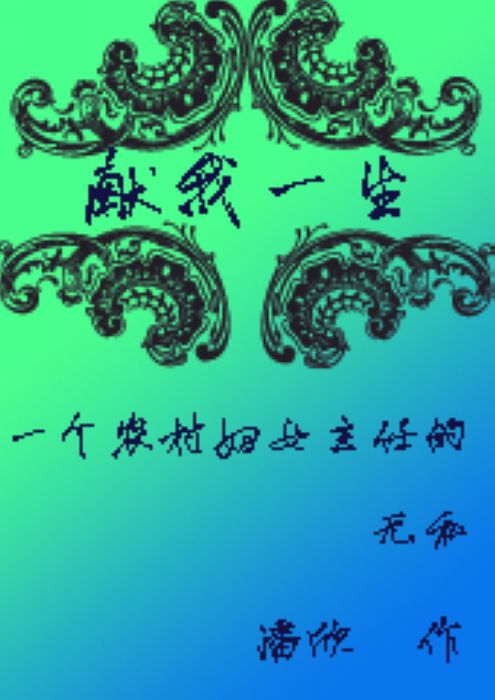 献我一生
一个农村妇女主任的
无私
潘欣 作